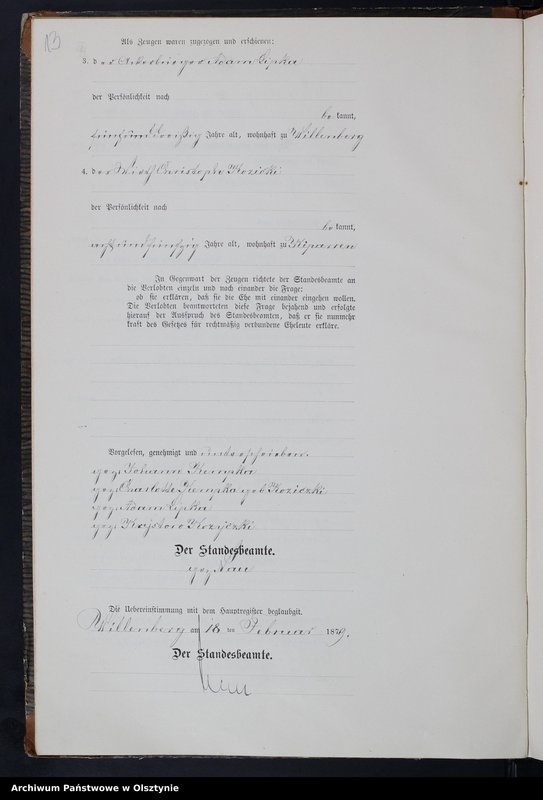 13
Als Zeugen waren zugezogen und erschienen:
3. der Ackerbürger Adam Lipka
der Persönlichkeit nach
be kannt,
fünfunddreißig Jahre alt, wohnhaft zu Willenberg
4. der Wirth Christoph Kozicki
der Persönlichkeit nach
be kannt,
achtundfünfzig Jahre alt, wohnhaft zu Kiparren
In Gegenwart der Zeugen richtete der Standesbeamte an
die Verlobten einzeln und nach einander die Frage:
ob sie erklären, daß sie die Ehe mit einander eingehen wollen.
Die Verlobten beantworteten diese Frage bejahend und erfolgte
hierauf der Ausspruch des Standesbeamten, daß er sie nunmehr
kraft des Gesetzes für rechtmäßig verbundene Eheleute erkläre.
Vorgelesen, genehmigt und unterschrieben.
gez. Johann Kempka
gez. Charlotte Kempka geb. Koziczki
gez. Adam Lipka
gez. Krystow Kozyczki
Der Standesbeamte.
gez.
Die Uebereinstimmung mit dem Hauptregister beglaubigt.
Willenberg am 18 ten Februar 1879.
Der Standesbeamte.
Archiwum Państwowe w Olsztynie